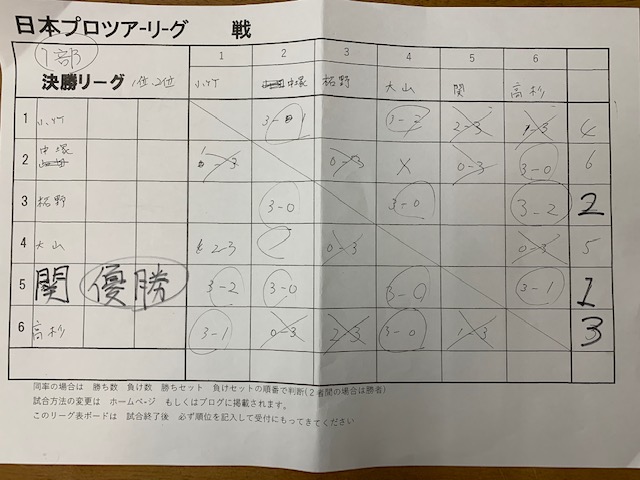 日本プロツアーリーグ 戦
1部
1 2 3 4 5 6
決勝リーグ 1位、2位 小灯 中塚 柘野 大山 関 高杉
1 小灯 3-1 3-2 2-3 1-3 4
2 中塚 1-3 0-3 × 0-3 3-0 6
3 柘野 3-0 3-0 3-2 2
4 大山 2-3 0-3 0-3 5
5 関 優勝 3-2 3-0 3-0 3-1 1
6 高杉 3-1 0-3 2-3 3-0 1-3 3
同率の場合は 勝ち数 負け数 勝ちセット 負けセットの順番で判断(2者間の場合は勝者)
試合方法の変更は ホームページ もしくはブログに掲載されます。
このリーグ表ボードは 試合終了後 必ず順位を記入して受付にもってきてください